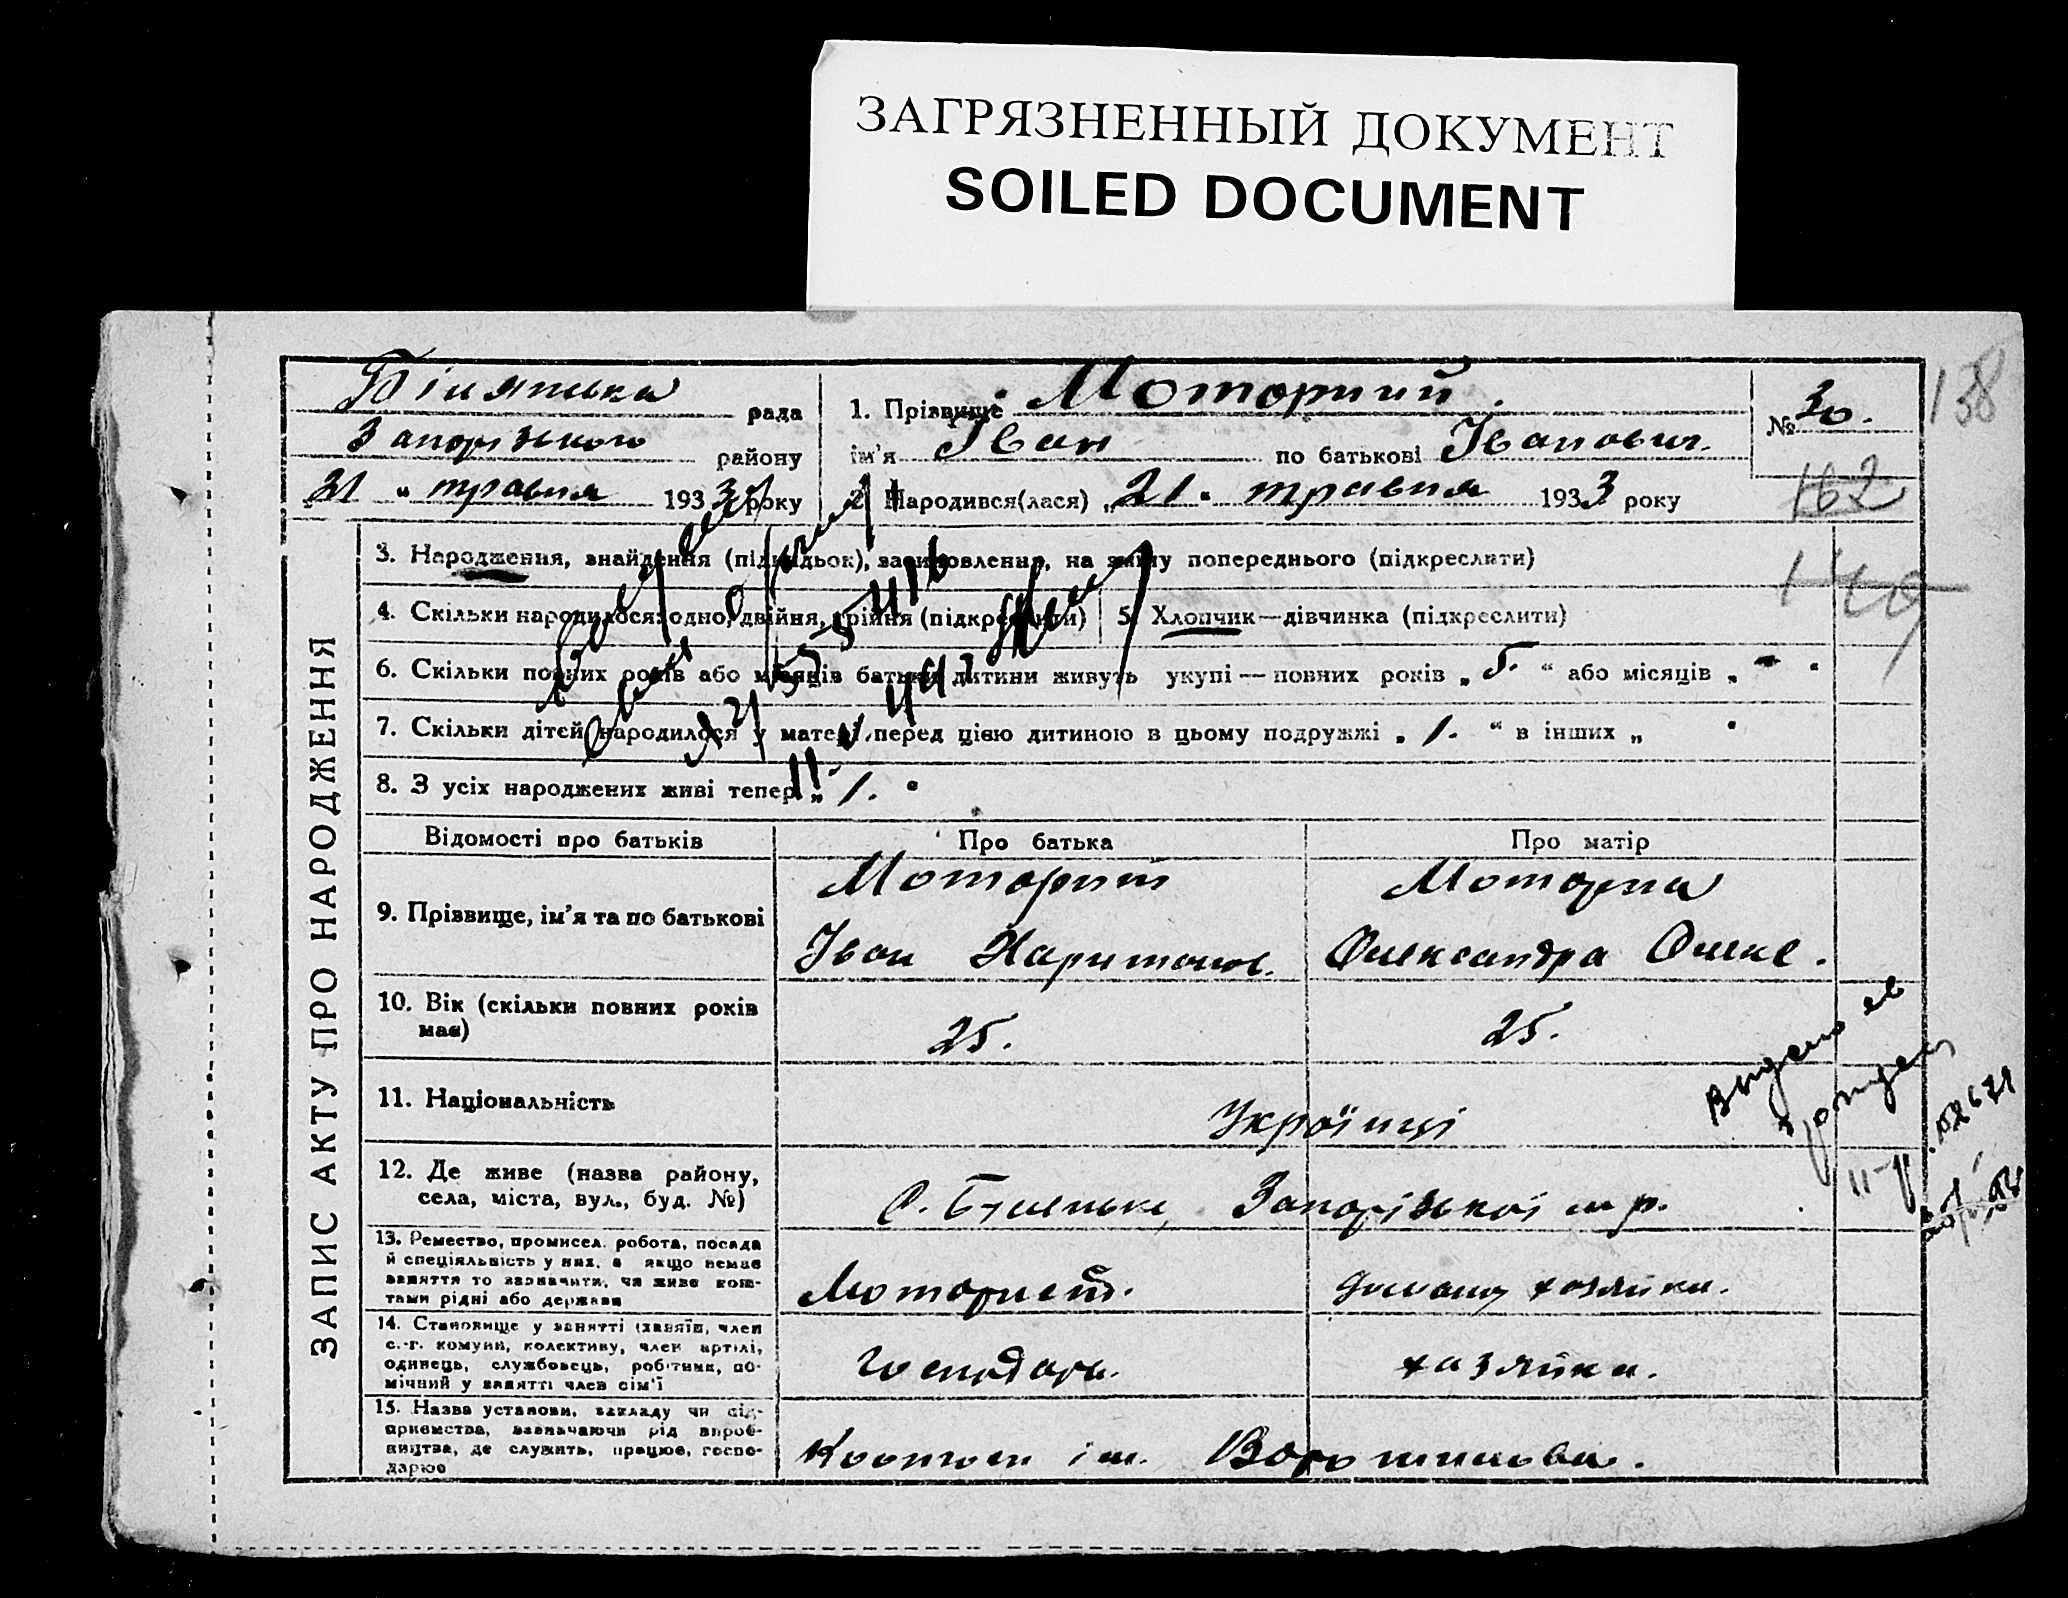 ЗАГРЯЗНЕННЫЙ ДОКУМЕНТ
SOILED DOCUMENT
рада
Запорізького району
21 " травня 1933 року
1. Прізвище Моторний.
ім'я Іван по батькові Іванович.
№ 30.
138
2. Народився(лася) „21. травня 1933 року
162
3. Народження, знайдення (підкидьок), засиновлення, на зміну попереднього (підкреслити)
4. Скільки народилося: одно, двійня, трійня (підкреслити)
5. Хлопчик—дівчинка (підкреслити)
6. Скільки повних років або місяців батьки дитини живуть укупі — повних років „ 5. “ або місяців „ - “
7. Скільки дітей народилося у матері перед цією дитиною в цьому подружжі „ 1. “ в інших „ “
8. З усіх народжених живі тепер „ 1. “
ЗАПИС АКТУ ПРО НАРОДЖЕННЯ
Відомості про батьків
Про батька
Про матір
9. Прізвище, ім'я та по батькові
Моторний
Іван Харитонов.
Моторна
Олександра Олекс.
10. Вік (скільки повних років має)
25.
25.
11. Національність
Українці
12. Де живе (назва району,
села, міста, вул., буд. №)
с. Біленьке, Запорізької м р.
13. Ремество, промисел, робота, посада
й спеціяльність у них, а якщо немає
заняття то зазначити, чи живе кош-
тами рідні або держави
Моторист.
хозяйка.
14. Становище у занятті (хазяїн, член
с.-г. комуни, колективу, член артілі,
одинець, службовець, робітник, по-
мічний у занятті член сім'ї
Господарь.
хозяйка.
15. Назва установи, закладу чи під-
приємства, зазначаючи рід вироб-
ництва, де служить, працює, госпо-
дарює
ім. Ворошилова.